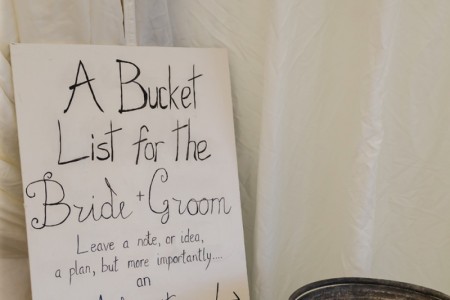 A Bucket
List for the
Bride + Groom
Leave a note, or idea,
a plan, but more importantly....
an